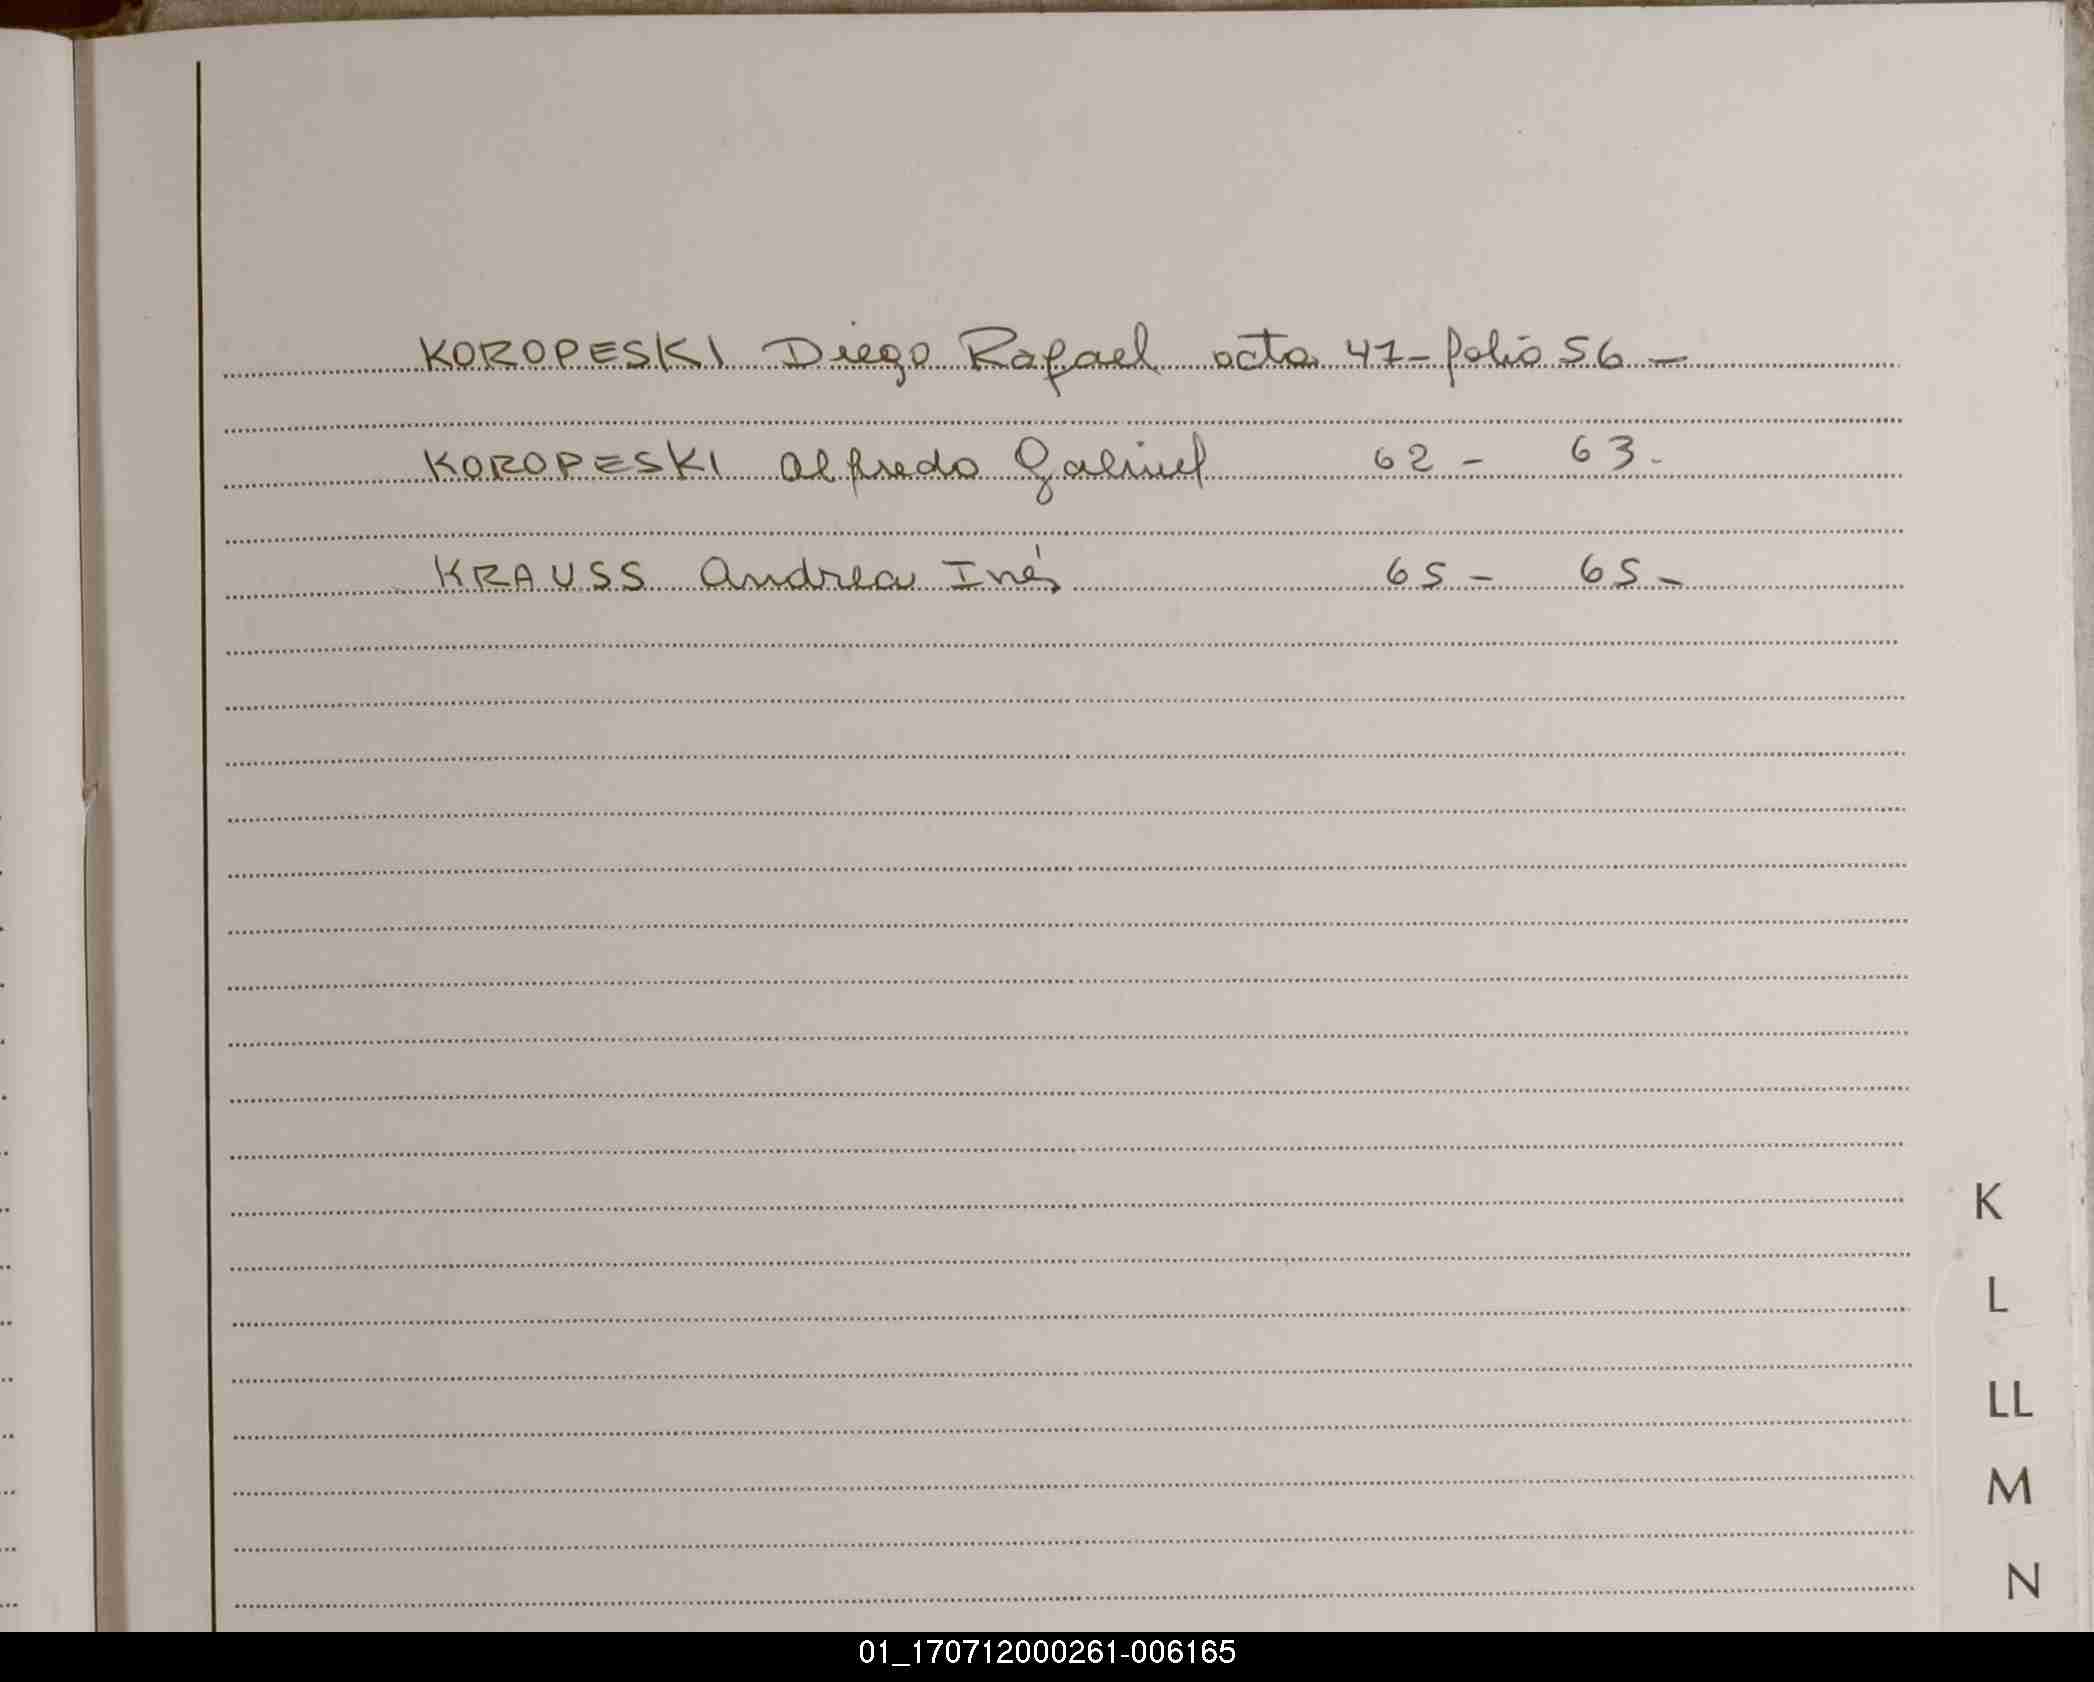 KOROPESKI Diego Rafael acta 47 - folio 56 -
KOROPESKI Alfredo Gabriel 62 - 63 -
KRAUSS Andrea Inés 65 - 65 -
K
L
LL
M
N
01_170712000261-006165